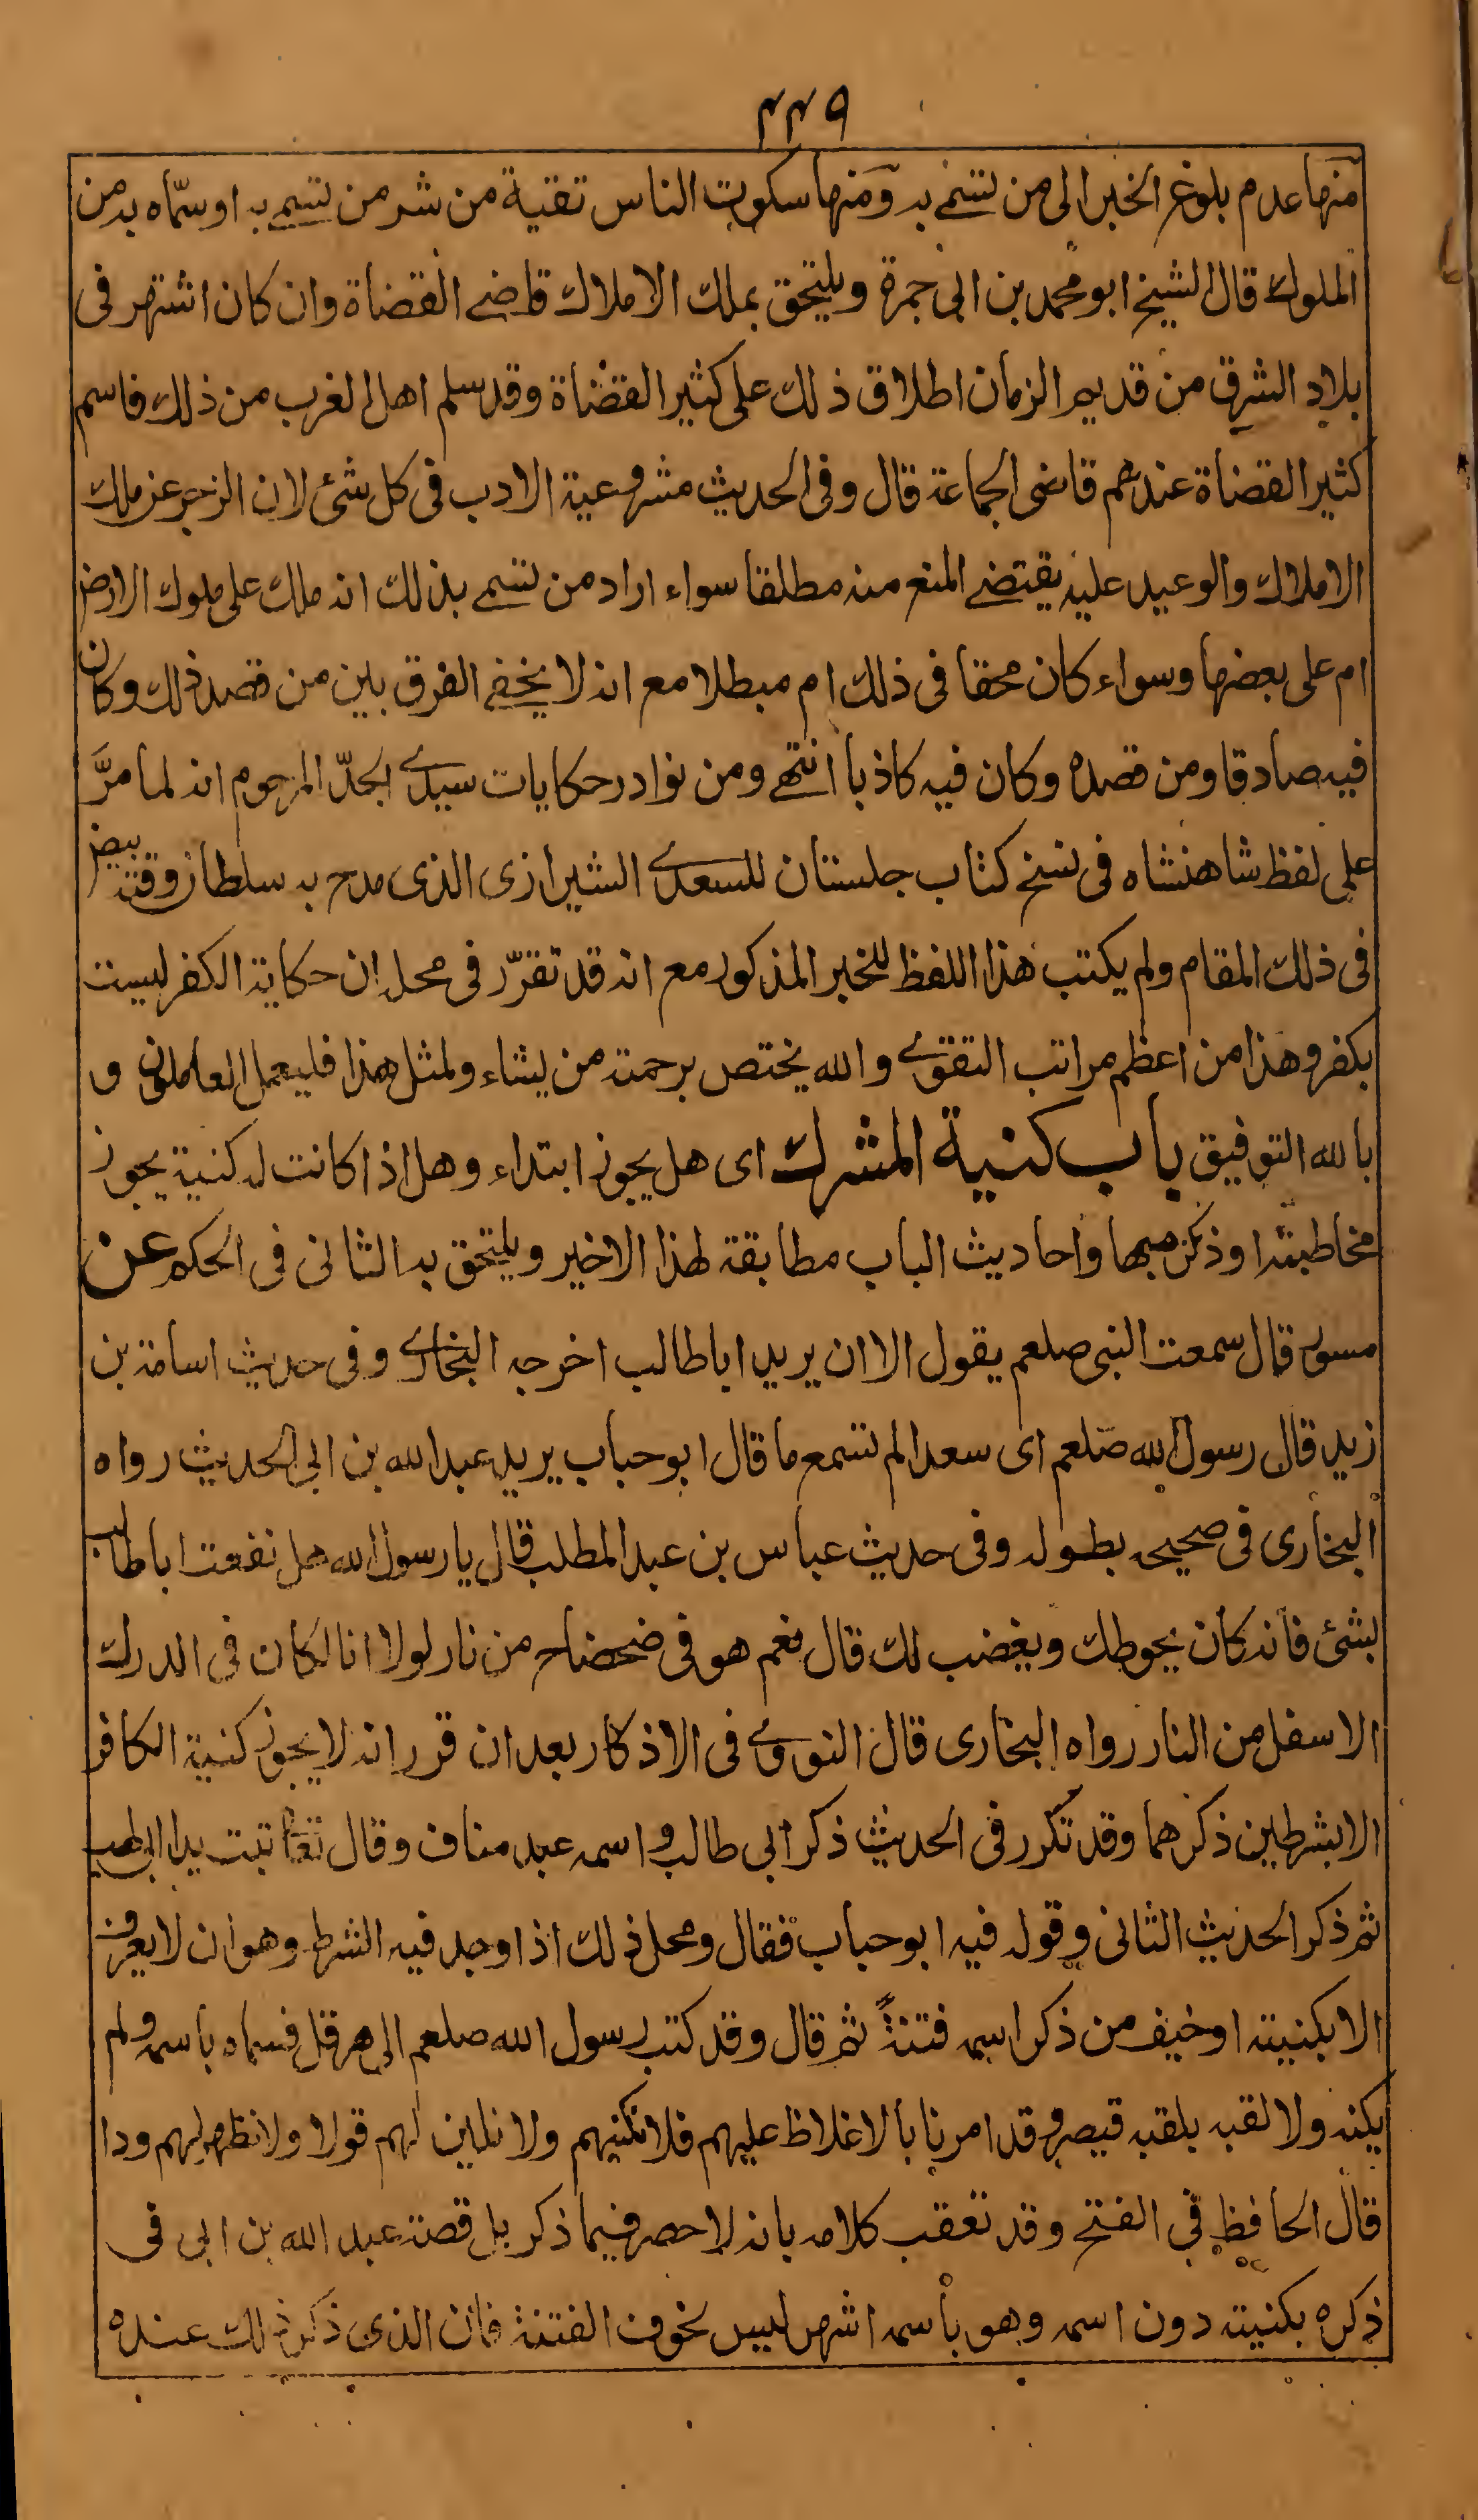 ٣٣٩
منها عدم بلوغ الخبر الى من تسمى به ومنها سكوت الناس تقية من شر من تسمى به او سمّاه به من
الملوك قال الشيخ ابو محمد بن ابى جمرة ويلتحق بملك الاملاك قاضى القضاة وان كان اشتهر فى
بلاد الشرق من قديم الزمان اطلاق ذلك على كثير القضاة وقد سلم اهل الغرب من ذلك فاسم
كثير القضاة عندهم قاضى الجماعة قال وفى الحديث مشروعية الادب فى كل شئ لان الزجر عن ملك
الاملاك والوعيد عليه يقتضى المنع منه مطلقا سواء اراد من تسمى بذلك انه ملك على ملوك الارض
ام على بعضها وسواء كان محقا فى ذلك ام مبطلا مع انه لا يخفى الفرق بين من قصد ذلك وكان
فيه صادقا ومن قصده وكان فيه كاذبا انتهى ومن نوادر حكايات سيدى الجدّ المرحوم انه لما مرَّ
على لفظ شاهنشاه فى نسخ كتاب جلستان للسعدى الشيرازى الذى مدح به سلطان وقته بيض
فى ذلك المقام ولم يكتب هذا اللفظ للخبر المذكور مع انه قد تقرّر فى محله ان حكاية الكفر ليست
بكفر وهذا من اعظم مراتب التقوى والله يختص برحمته من يشاء ولمثل هذا فليعمل العاملون و
بالله التوفيق باب كنية المشرك اى هل يجوز ابتداء وهل اذا كانت له كنية يجوز
مخاطبته او ذكره بها واحاديث الباب مطابقة لهذا الاخير ويلتحق به الثانى فى الحكم عن
مسور قال سمعت النبى صلعم يقول الا ان يريد اباطالب اخرجه البخارى وفى حديث اسامة بن
زيد قال رسول الله صلعم اى سعد الم تسمع ما قال ابو حباب يريد عبد الله بن ابى الحديث رواه
البخارى فى صحيحه بطوله وفى حديث عباس بن عبد المطلب قال يا رسول الله هل نفعت اباطالب
بشئ فانه كان يحوطك ويغضب لك قال نعم هو فى ضحضاح من نار لولا انا لكان فى الدرك
الاسفل من النار رواه البخارى قال النووى فى الاذكار بعد ان قرر انه لا يجوز كنية الكافر
الا بشرطين ذكرهما وقد تكرر فى الحديث ذكر ابى طالب واسمه عبد مناف وقال تعا تبت يدا ابى لهب
ثم ذكر الحديث الثانى وقوله فيه ابو حباب فقال ومحل ذلك اذا وجد فيه الشرط وهو ان لا يعرف
الا بكنيته او خيف من ذكر اسمه فتنةً ثم قال وقد كتب رسول الله صلعم الى هرقل فسماه باسمه ولم
يكنه ولا لقبه بلقبه قيصر وقد امرنا بالاغلاظ عليهم فلا نكنيهم ولا نلين لهم قولا ولا نظهر لهم ودا
قال الحافظ فى الفتح وقد تعقب كلامه بانه لا حصر فيما ذكر بل قصة عبد الله بن ابى فى
ذكره بكنيته دون اسمه وهو باسمه اشهر ليس لخوف الفتنة فان الذى ذكر ذلك عنده